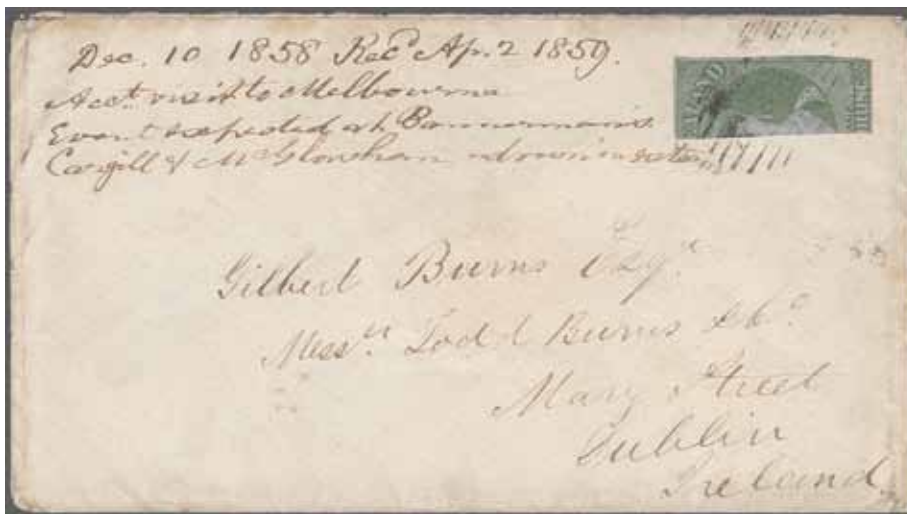 Dec. 10 1858 Recd Ap. 2 1859.
Acct. visit to Melbourne
Event expected at Bannerman's
Cargill & McGlashan administrators
Gilbert Burns Esqr.
Messrs. Todd Burns & Co.
Mary Street
Dublin
Ireland